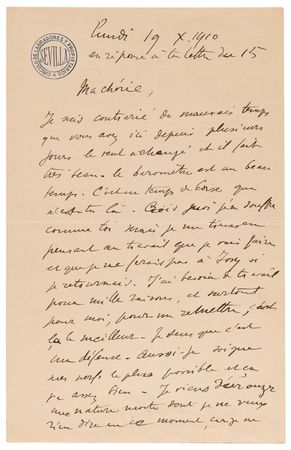 CIRCULO DE LABRADORES Y PROPIETARIOS
SEVILLA
Lundi 19 X. 1910
en réponse à ta lettre du 15
Ma chérie,
Je suis contrarié du mauvais temps
que vous avez ici depuis plusieurs
jours le vent a changé et il fait
très beau - le baromètre est au beau
temps. C'est un temps de
que
n'es là - Crois j'en souffre
comme toi mais je me
en
pensant au travail que je vais faire
et que je ne ferais pas à Issy si
je retournais. J'ai besoin de travail
pour mille raisons, et surtout
pour moi, pour me remettre, c'est
là le meilleur - Je sens que c'est
une défense - Aussi je soigne
mes nerfs le plus possible et en
assez bien - Je viens d'arranger
une nature morte dont je ne veux
rien dire en ce moment, car je ne